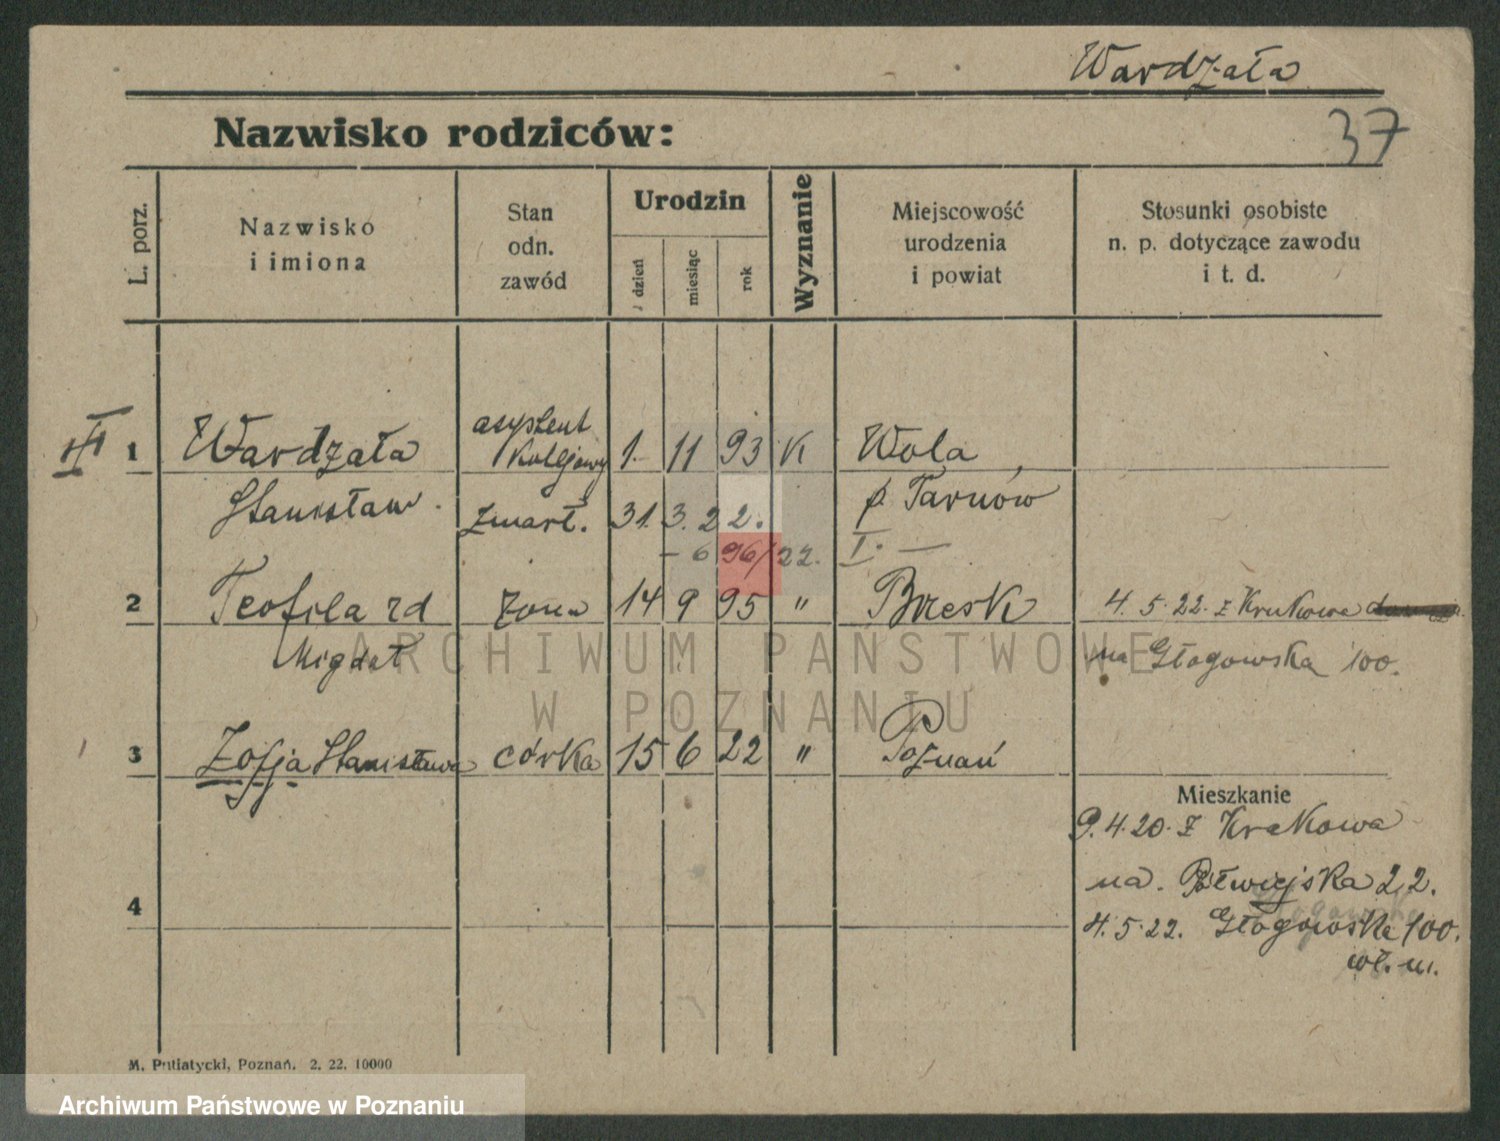 Wardzała
Nazwisko rodziców:
37
L. porz.
Nazwisko
i imiona
Stan
odn.
zawód
Urodzin
dzień
miesiąc
rok
Wyznanie
Miejscowość
urodzenia
i powiat
Stosunki osobiste
n. p. dotyczące zawodu
i t. d.
III
1 Wardzała asystent kolejowy 1. 11 93 K Wola
Stanisław zmarł. 31. 3. 22. p. Tarnów
- 6 96/22. I. —
2 Teofila rd żona 14 9 95 " Brzesk 4. 5. 22. z Krakowa
Migdał na Głogowska 100.
3 Zofja Stanisława córka 15 6 22 " Poznań
Mieszkanie
9. 4. 20. z Krakowa
na. Półwiejska 22.
4
4. 5. 22. Głogowska 100.
wł. m.
M. Putiatycki, Poznań. 2. 22. 10000
ARCHIWUM PAŃSTWOWE
W POZNANIU
Archiwum Państwowe w Poznaniu